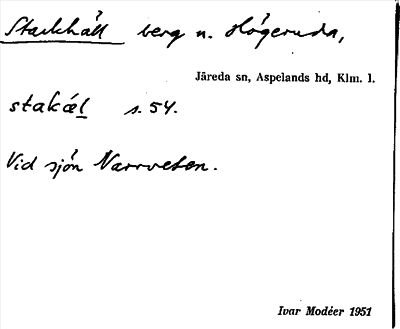 Stackhäll berg n. Högeruda,
Järeda sn, Aspelands hd, Klm. l.
stakæ̀l s. 54.
Vid sjön Narrveten.
Ivar Modéer 1951